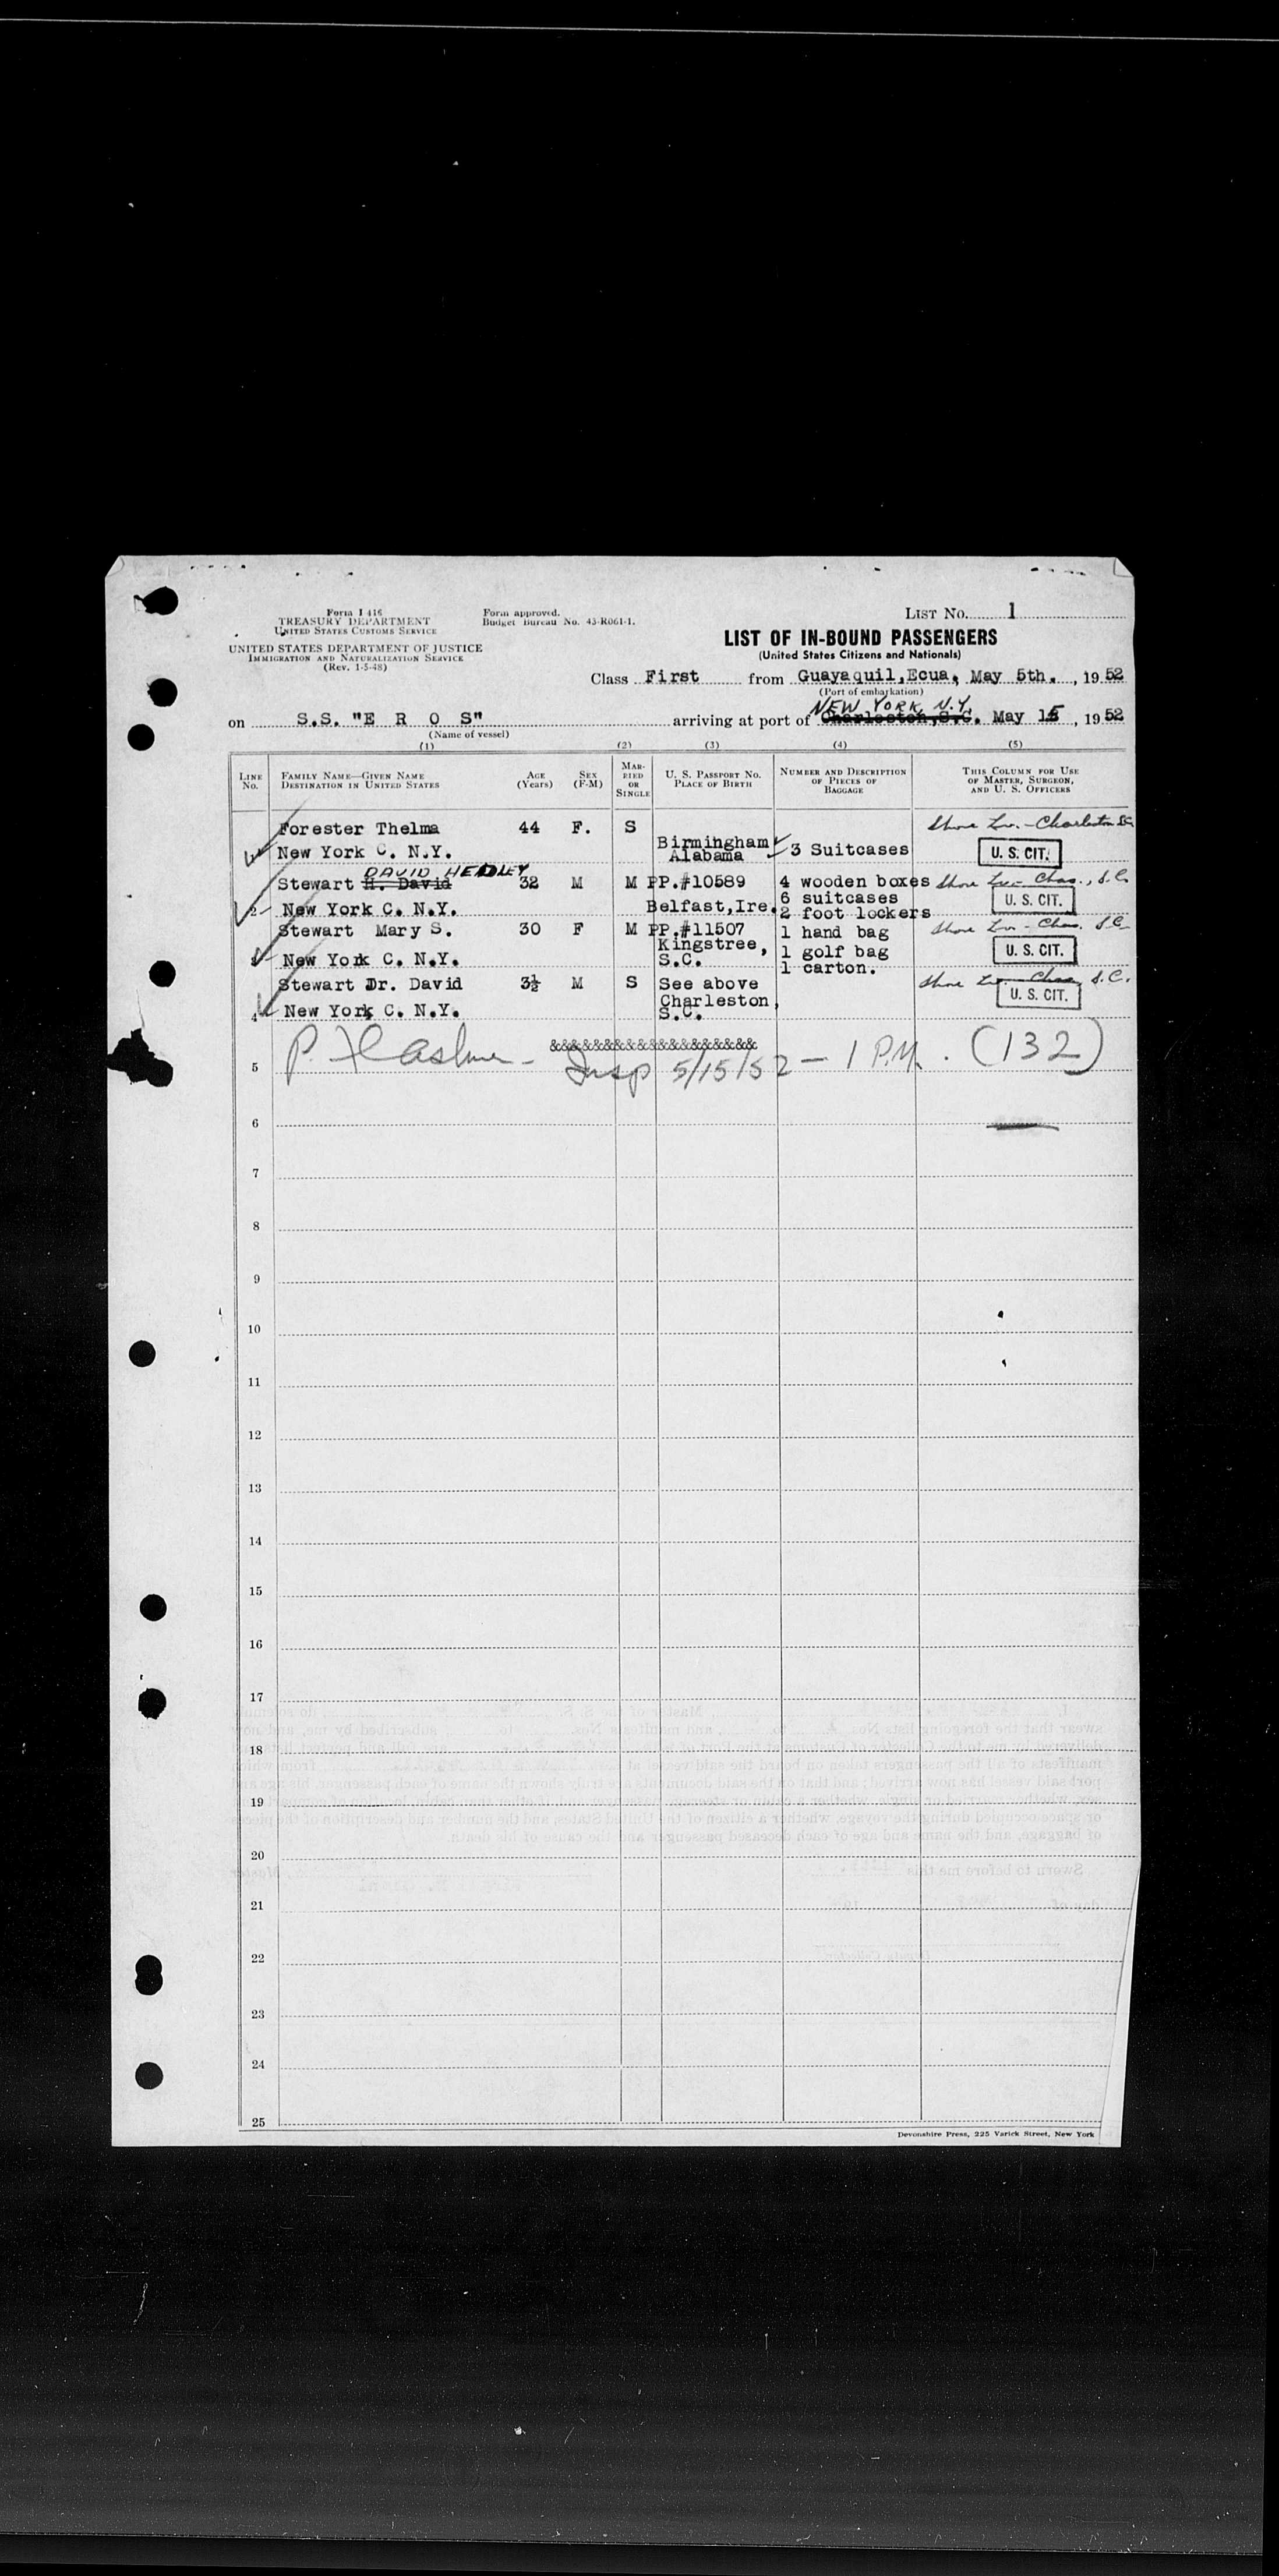 Form I 416
TREASURY DEPARTMENT
UNITED STATES CUSTOMS SERVICE
UNITED STATES DEPARTMENT OF JUSTICE
IMMIGRATION AND NATURALIZATION SERVICE
(Rev. 1-5-48)
Form approved.
Budget Bureau No. 43-R061-1.
LIST NO. 1
LIST OF IN-BOUND PASSENGERS
(United States Citizens and Nationals)
Class First from Guayaquil,Ecua, May 5th. , 1952
(Port of embarkation)
NEW YORK, N.Y.
on S.S. "E R O S" arriving at port of Charleston,S.C. May 15 , 1952
(Name of vessel)
(1) (2) (3) (4) (5)
LINE NO.
FAMILY NAME—GIVEN NAME
DESTINATION IN UNITED STATES
AGE (Years)
SEX (F-M)
MARRIED OR SINGLE
U. S. PASSPORT NO.
PLACE OF BIRTH
NUMBER AND DESCRIPTION OF PIECES OF BAGGAGE
THIS COLUMN FOR USE OF MASTER, SURGEON, AND U. S. OFFICERS
Forester Thelma 44 F. S Charleston
New York C. N.Y. Birmingham Alabama 3 Suitcases U. S. CIT.
DAVID HEDLEY
Stewart H. David 32 M M PP.#10589 4 wooden boxes Chas., S.C.
2 New York C. N.Y. Belfast,Ire. 6 suitcases U. S. CIT.
2 foot lockers
Stewart Mary S. 30 F M PP.#11507 1 hand bag Chas. S.C.
New York C. N.Y. Kingstree, S.C. 1 golf bag U. S. CIT.
1 carton.
Stewart Dr. David 3½ M S See above Chas. S.C.
4 New York C. N.Y. Charleston, S.C. U. S. CIT.
&&&&&&&&&&&&&&&&&&&
5 P. Insp 5/15/52 — 1 P.M. (132)
6
7
8
9
10
11
12
13
14
15
16
17
18
19
20
21
22
23
24
25
Devonshire Press, 225 Varick Street, New York